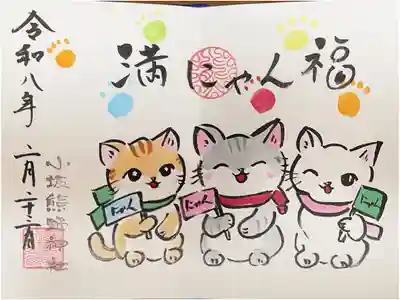 満にゃん福
令和八年
二月二十二日
小坂熊野神社
にゃん
にゃん
にゃん